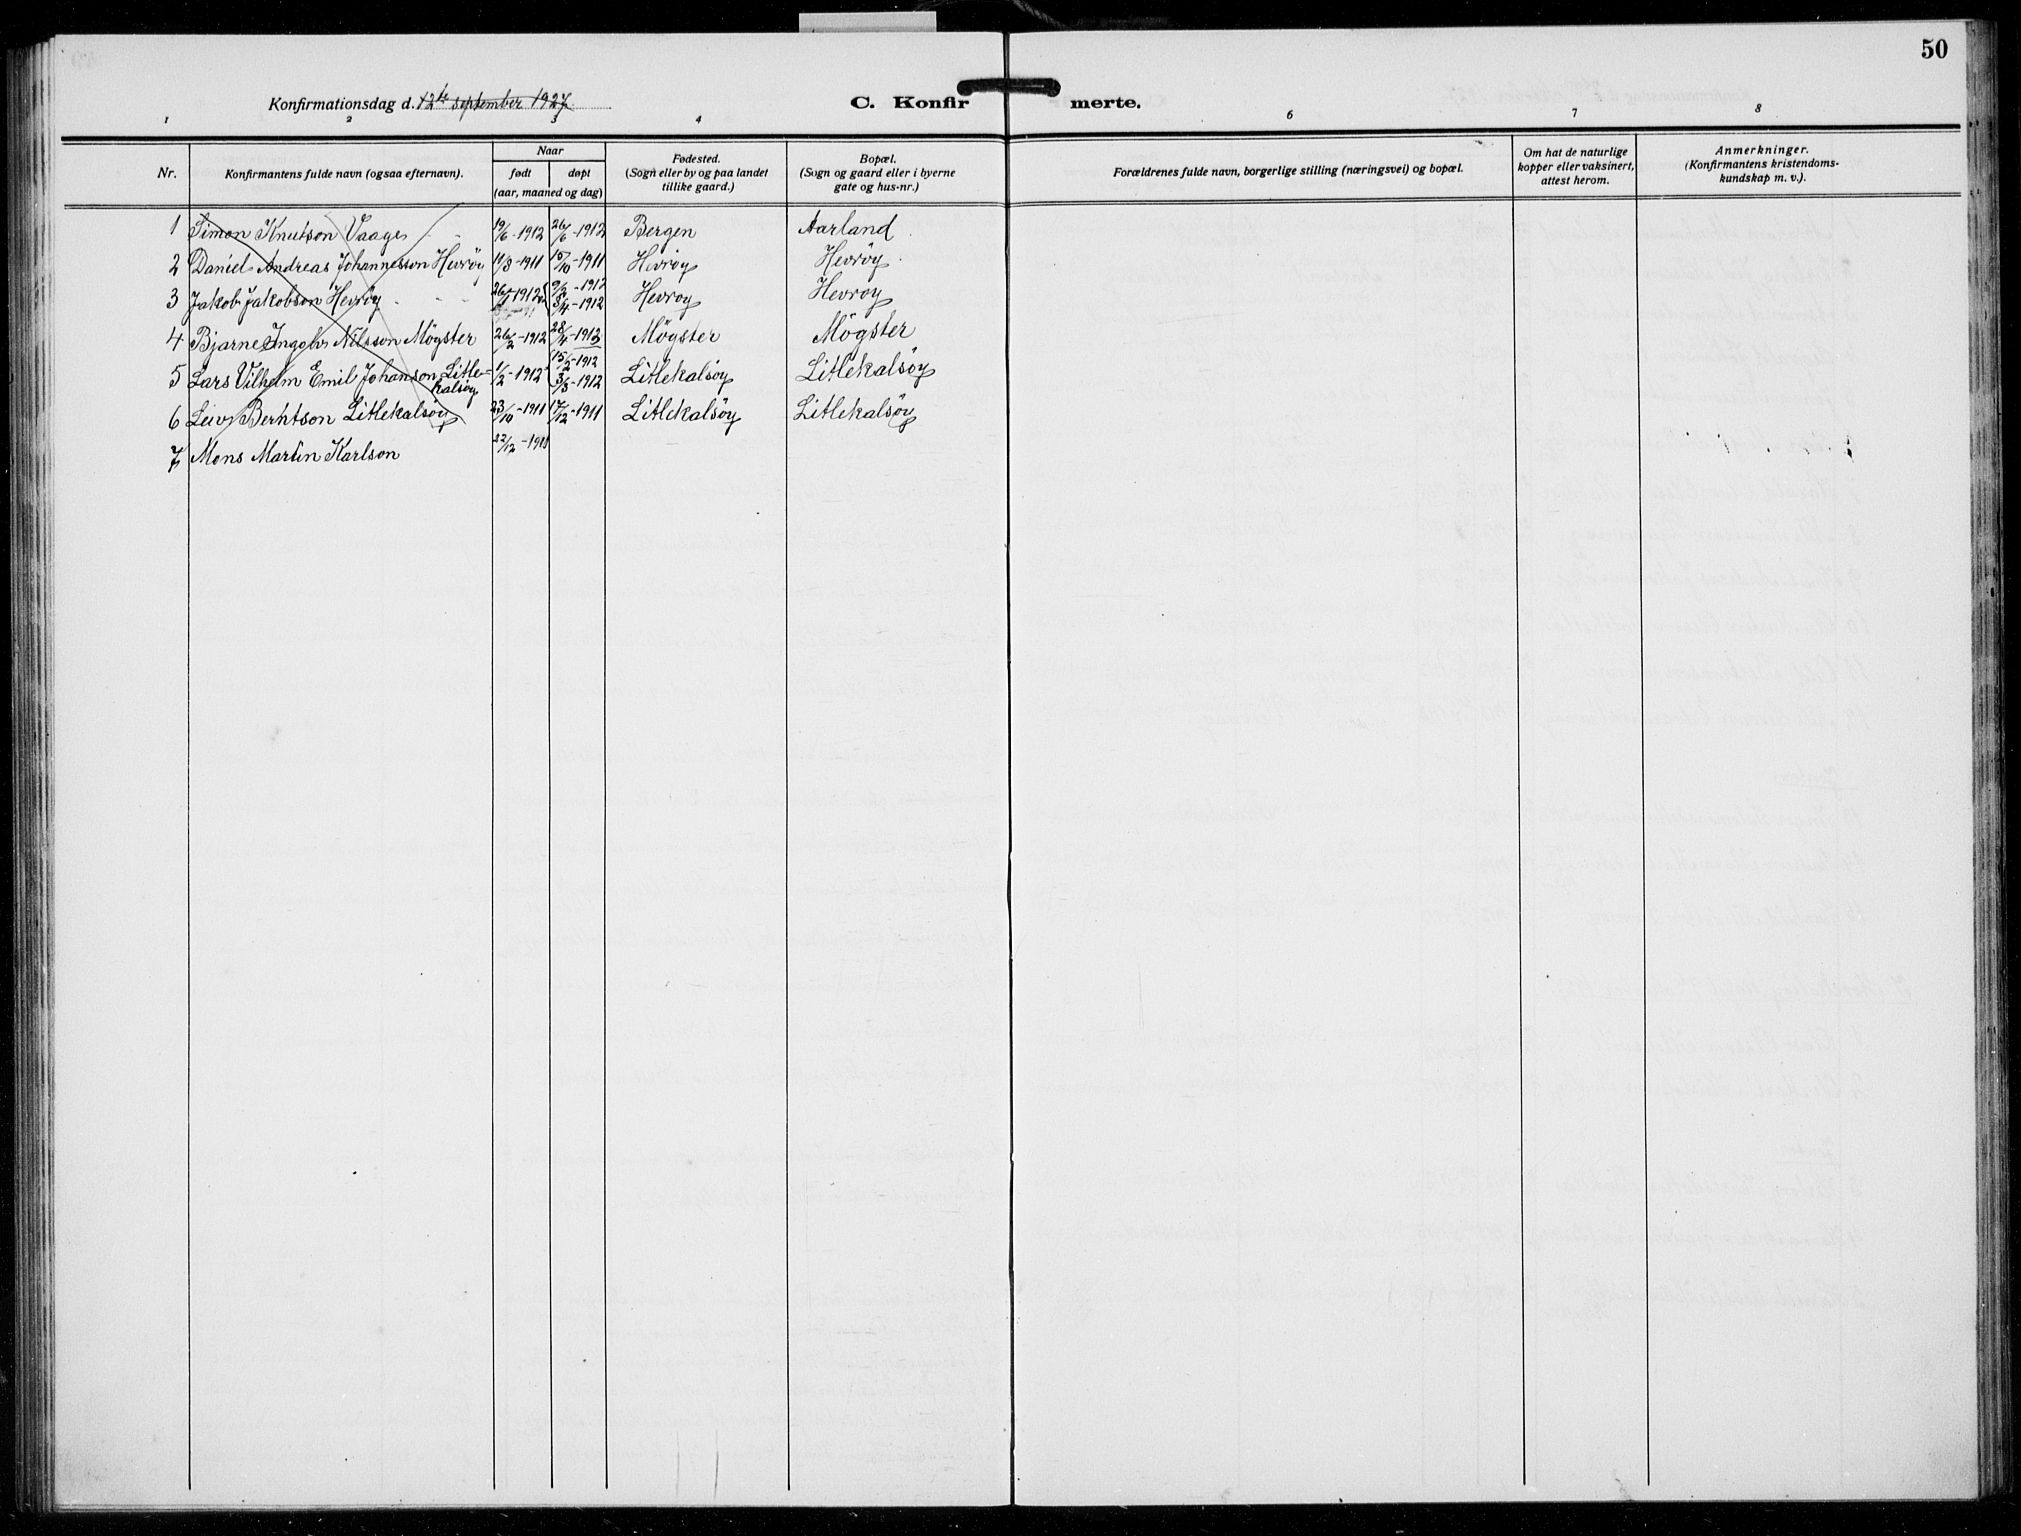 50
Konfirmationsdag d. 12te september 1927
C. Konfirmerte.
1 2 3 4 6 7 8
Nr.
Konfirmantens fulde navn (ogsaa efternavn).
Naar
født døpt
(aar, maaned og dag)
Fødested.
(Sogn eller by og paa landet
tillike gaard.)
Bopæl.
(Sogn og gaard eller i byerne
gate og hus-nr.)
Forældrenes fulde navn, borgerlige stilling (næringsvei) og bopæl.
Om hat de naturlige
kopper eller vaksinert,
attest herom.
Anmerkninger.
(Konfirmantens kristendoms-
kundskap m. v.).
1 Simon Knutson Vaage 19/6-1912 26/6-1912 Bergen Aarland
2 Daniel Andreas Johannesson Hevröy 11/8-1911 15/10-1911 Hevröy Hevröy
3 Jakob Jakobson Hevröy 26/1-1912 9/2-1912 8/4-1912 Hevröy Hevröy
4 Bjarne Ingolv Nilsson Mögster 26/2-1912 28/4-1912 Mögster Mögster
5 Lars Vilhelm Emil Johanson Litle-
kalsöy 1/2-1912 15/2-1912 3/3-1912 Litlekalsöy Litlekalsöy
6 Leiv Berntson Litlekalsöy 23/10-1911 17/12-1911 Litlekalsöy Litlekalsöy
7 Mons Martin Karlson 22/12-1911